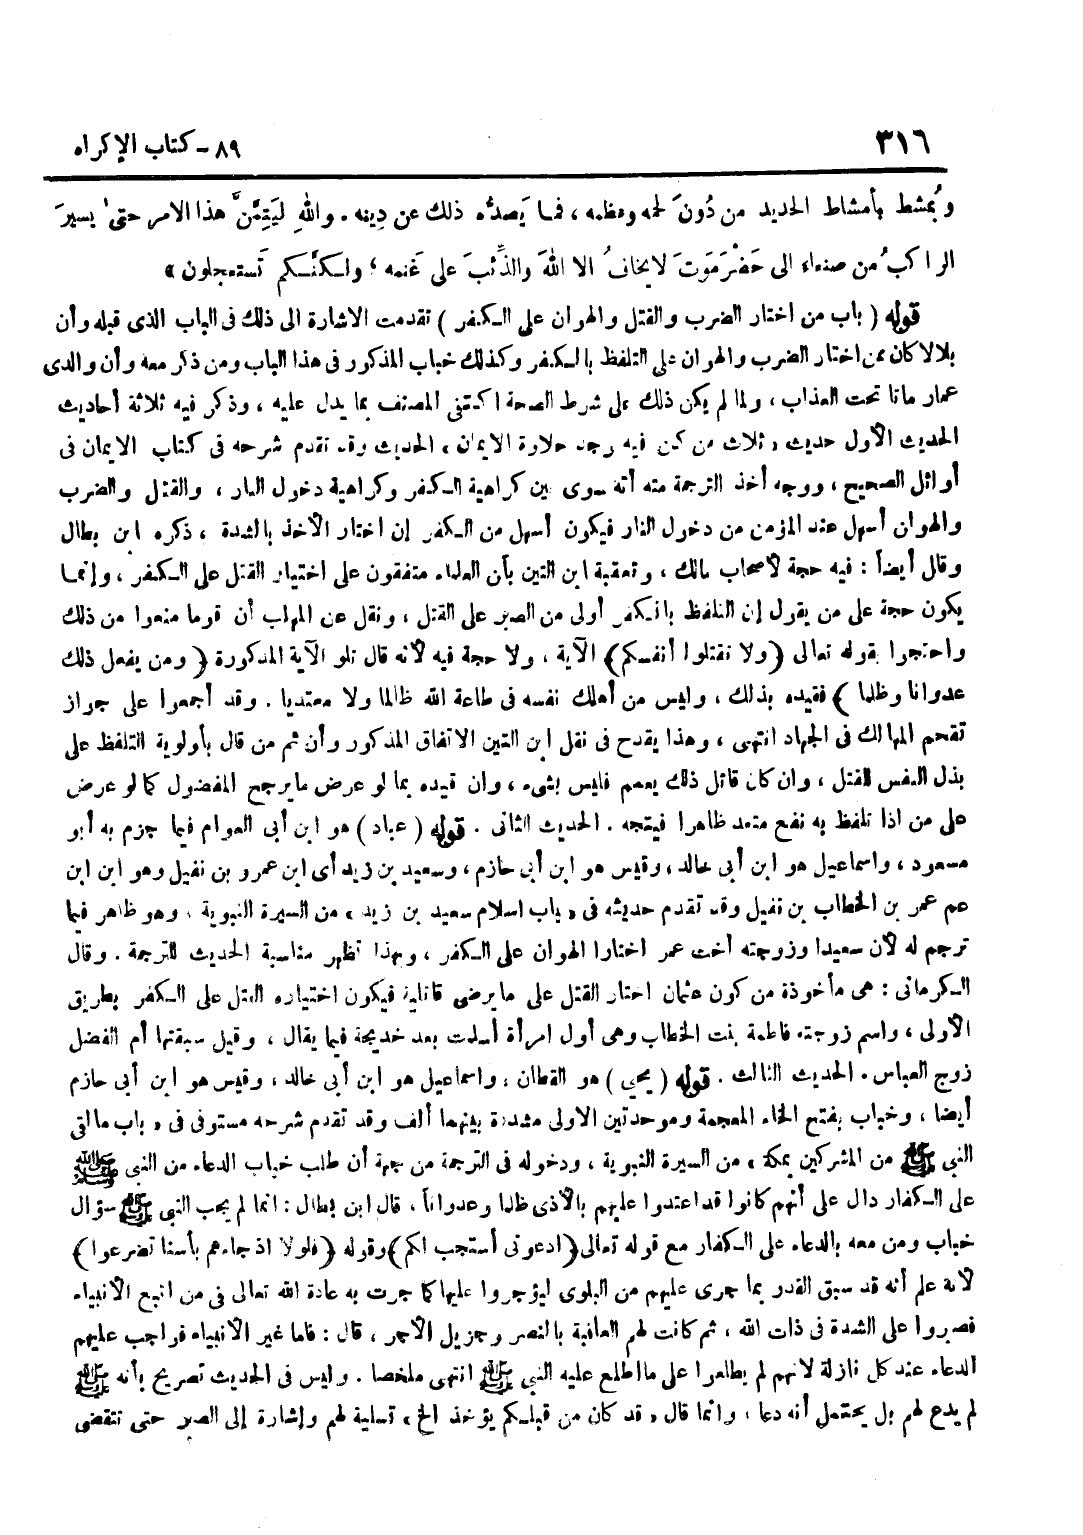 ٣١٦
٨٩ - كتاب الإكراه
ويُمشط بأمشاط الحديد من دُونَ لحمه وعظمه ، فما يَصدُّه ذلك عن دِينه . واللهِ ليَتِمَّنَّ هذا الامر حتىٰ يسيرَ
الراكبُ من صنعاء الى حَضْرَمَوتَ لا يخافُ الا اللهَ والذِّئبَ على غَنمه ؛ ولـكنَّـكم تَستعجلون »
قوله ( باب من اختار الضرب والقتل والهوان على الـكـفر ) تقدمت الاشارة الى ذلك فى الباب الذى قبله وأن
بلالا كان ممن اختار الضرب والهوان على التلفظ بالـكفر وكذلك خباب المذكور فى هذا الباب ومن ذكر معه وأن والدى
عمار ماتا تحت العذاب ، ولما لم يكن ذلك على شرط الصحة اكتفى المصنف بما يدل عليه ، وذكر فيه ثلاثة أحاديث
الحديث الأول حديث « ثلاث من كن فيه وجد حلاوة الايمان ، الحديث وقد تقدم شرحه فى كتاب الايمان فى
أوائل الصحيح ، ووجه أخذ الترجمة منه أنه سوى بين كراهية الـكفر وكراهية دخول النار ، والقتل والضرب
والهوان أسهل عند المؤمن من دخول النار فيكون أسهل من الـكفر إن اختار الأخذ بالشدة ، ذكره ابن بطال
وقال أيضاً : فيه حجة لأصحاب مالك ، وتعقبة ابن التين بأن العلماء متفقون على اختيار القتل على الـكـفر ، وإنمـا
يكون حجة على من يقول إن التلفظ بالـكفر أولى من الصبر على القتل ، ونقل عن المهلب أن قوما منعوا من ذلك
واحتجوا بقوله تعالى ﴿ ولا تقتلوا أنفسكم ﴾ الآية ، ولا حجة فيه لأنه قال تلو الآية المذكورة ﴿ ومن يفعل ذلك
عدوانا وظلما ﴾ فقيده بذلك ، وليس من أهلك نفسه فى طاعة الله ظالما ولا معتديا . وقد أجمعوا على جواز
تقحم المهالك فى الجهاد انتهى ، وهذا يقدح فى نقل ابن التين الاتفاق المذكور وأن ثم من قال بأولوية التلفظ على
بذل النفس للقتل ، وان كان قائل ذلك يعمم فليس بشىء ، وان قيده بما لو عرض ما يرجح المفضول كما لو عرض
على من اذا تلفظ به نفع متعد ظاهرا فيتجه . الحديث الثانى . قوله ( عباد ) هو ابن أبى العوام فيما جزم به أبو
مسعود ، واسماعيل هو ابن أبى خالد ، وقيس هو ابن أبى حازم ، وسعيد بن زيد أى ابن عمرو بن نفيل وهو ابن ابن
عم عمر بن الخطاب بن نفيل وقد تقدم حديثه فى « باب اسلام سعيد بن زيد ، من السيرة النبوية ، وهو ظاهر فيما
ترجم له لأن سعيدا وزوجته أخت عمر اختارا الهوان على الـكفر ، وبهذا تظهر مناسبة الحديث للترجمة . وقال
الـكرمانى : هى مأخوذة من كون عثمان اختار القتل على ما يرضى قاتليه فيكون اختياره القتل على الـكفر بطريق
الأولى ، واسم زوجته فاطمة بنت الخطاب وهى أول امرأة أسلمت بعد خديجة فيما يقال ، وقيل سبقتها أم الفضل
زوج العباس . الحديث الثالث . قوله ( يحيى ) هو القطان ، واسماعيل هو ابن أبى خالد ، وقيس هو ابن أبى حازم
أيضا ، وخباب بفتح الخاء المعجمة وموحدتين الاولى مشددة بينهما ألف وقد تقدم شرحه مستوفى فى « باب ما لقى
النبى ﷺ من المشركين بمكة » من السيرة النبوية ، ودخوله فى الترجمة من جهة أن طلب خباب الدعاء من النبى ﷺ
على الـكفار دال على أنهم كانوا قد اعتدوا عليهم بالأذى ظلما وعدواناً ، قال ابن بطال : انما لم يجب النبى ﷺ سؤال
خباب ومن معه بالدعاء على الـكفار مع قوله تعالى ﴿ ادعونى أستجب لكم ﴾ وقوله ﴿ فلولا اذ جاءهم بأسنا تضرعوا ﴾
لأنه علم أنه قد سبق القدر بما جرى عليهم من البلوى ليؤجروا عليها كما جرت به عادة الله تعالى فى من اتبع الأنبياء
فصبروا على الشدة فى ذات الله ، ثم كانت لهم العاقبة بالنصر وجزيل الأجر ، قال : فأما غير الأنبياء فواجب عليهم
الدعاء عند كل نازلة لانهم لم يطلعوا على ما اطلع عليه النبى ﷺ انتهى ملخصا . وليس فى الحديث تصريح بأنه ﷺ
لم يدع لهم بل يحتمل أنه دعا ، وانما قال « قد كان من قبلـكم يؤخذ الخ ، تسلية لهم وإشارة إلى الصبر حتى تنقضى